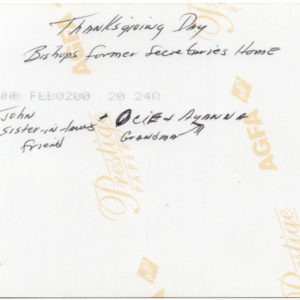 Thanksgiving Day
Bishops former Secretaries Home
NNB FEB0200 20 24A
John + Ocie + Ayanna
Sister-in-laws Grandma
friend
Prestige
PAPER
AGFA
AGFA
Prestige
PAPE
AGFA
Prestige